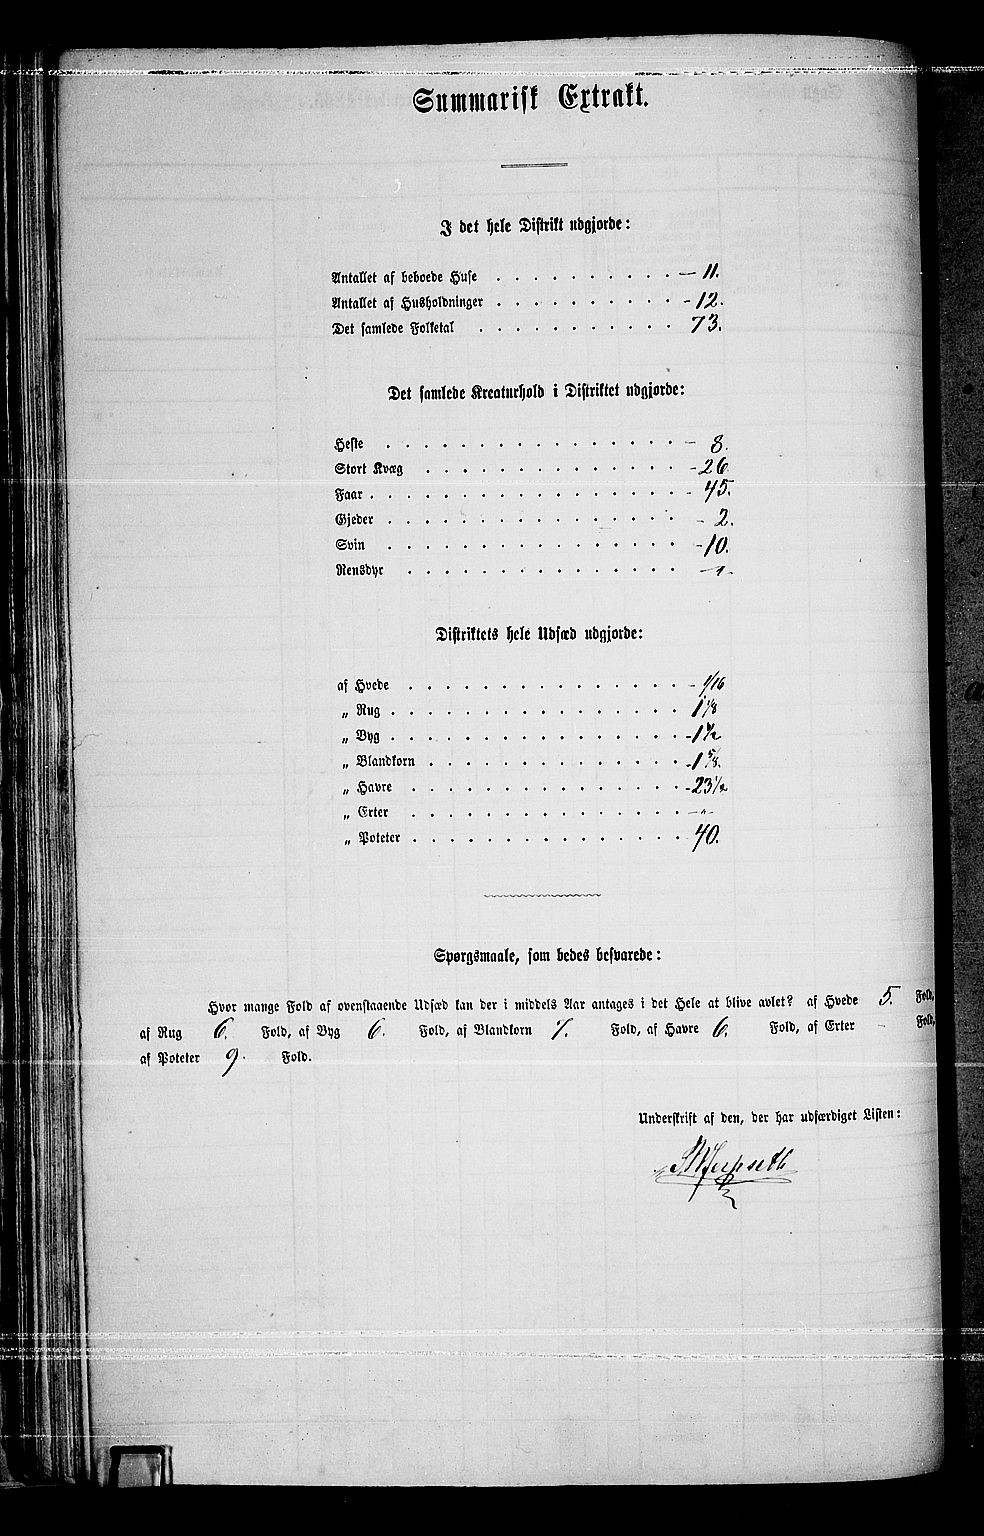 Summarisk Extrakt.
I det hele Distrikt udgjorde:
Antallet af beboede Huse . . . . . . . . 11.
Antallet af Husholdninger . . . . . . . . 12.
Det samlede Folketal . . . . . . . . 73.
Det samlede Kreaturhold i Distriktet udgjorde:
Heste . . . . . . . . . . . . 8.
Stort Kvæg . . . . . . . . . . . 26
Faar . . . . . . . . . . . . . 45.
Gjeder . . . . . . . . . . . . 2.
Svin . . . . . . . . . . . . 10.
Rensdyr . . . . . . . . . . .
Distriktets hele Udsæd udgjorde:
af Hvede . . . . . . . . . . . 1/16
„ Rug . . . . . . . . . . . . 1 1/8
„ Byg . . . . . . . . . . . . 1
„ Blandkorn . . . . . . . . . . . 1 5/8.
„ Havre . . . . . . . . . . . 23 1/2
„ Erter . . . . . . . . . . . "
„ Poteter . . . . . . . . . . . 40.
Spørgsmaale, som bedes besvarede:
Hvor mange Fold af ovenstaaende Udsæd kan der i middels Aar antages i det Hele at blive avlet? af Hvede 5. Fold,
af Rug 6. Fold, af Byg 6. Fold, af Blandkorn 7. Fold, af Havre 6. Fold, af Erter – Fold,
af Poteter 9. Fold.
Underskrift af den, der har udfærdiget Listen: